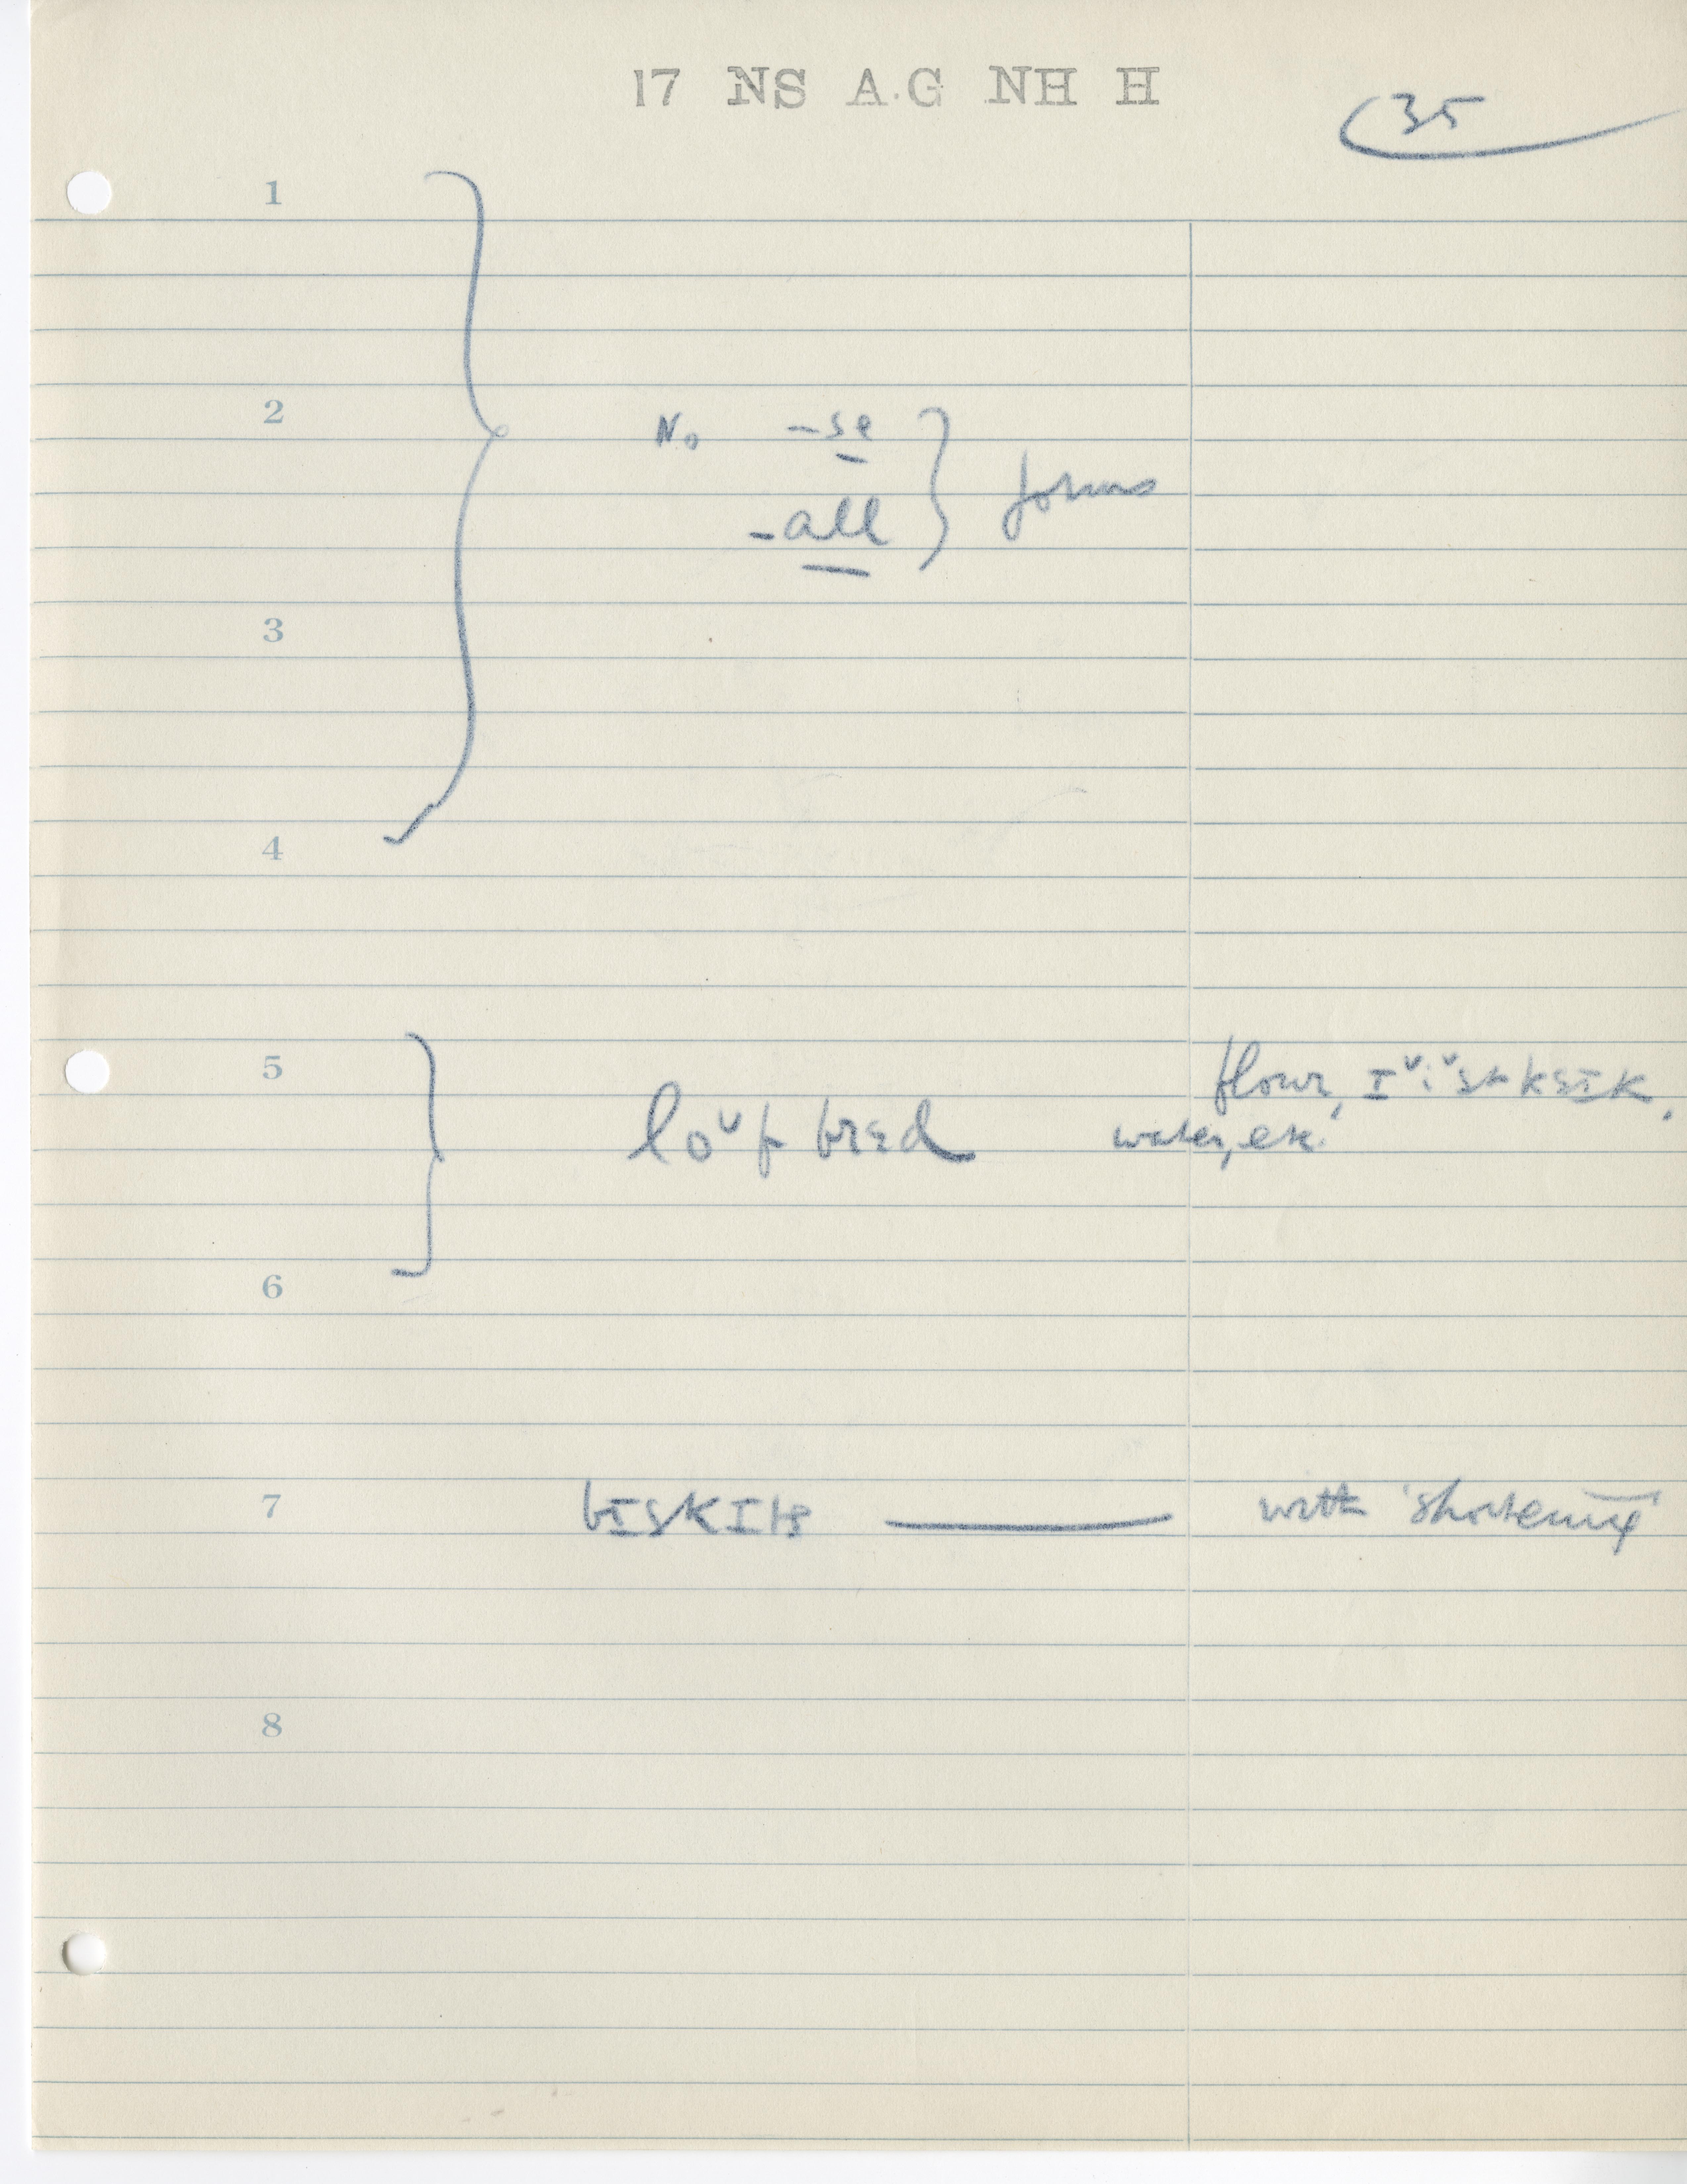 17 NS A.G NH H
35
1
2
No -se
forms
-all
3
4
5
flour,
loᵛf brɛd
water, etc.
6
7
bɪskɪts with 'shortening'
8